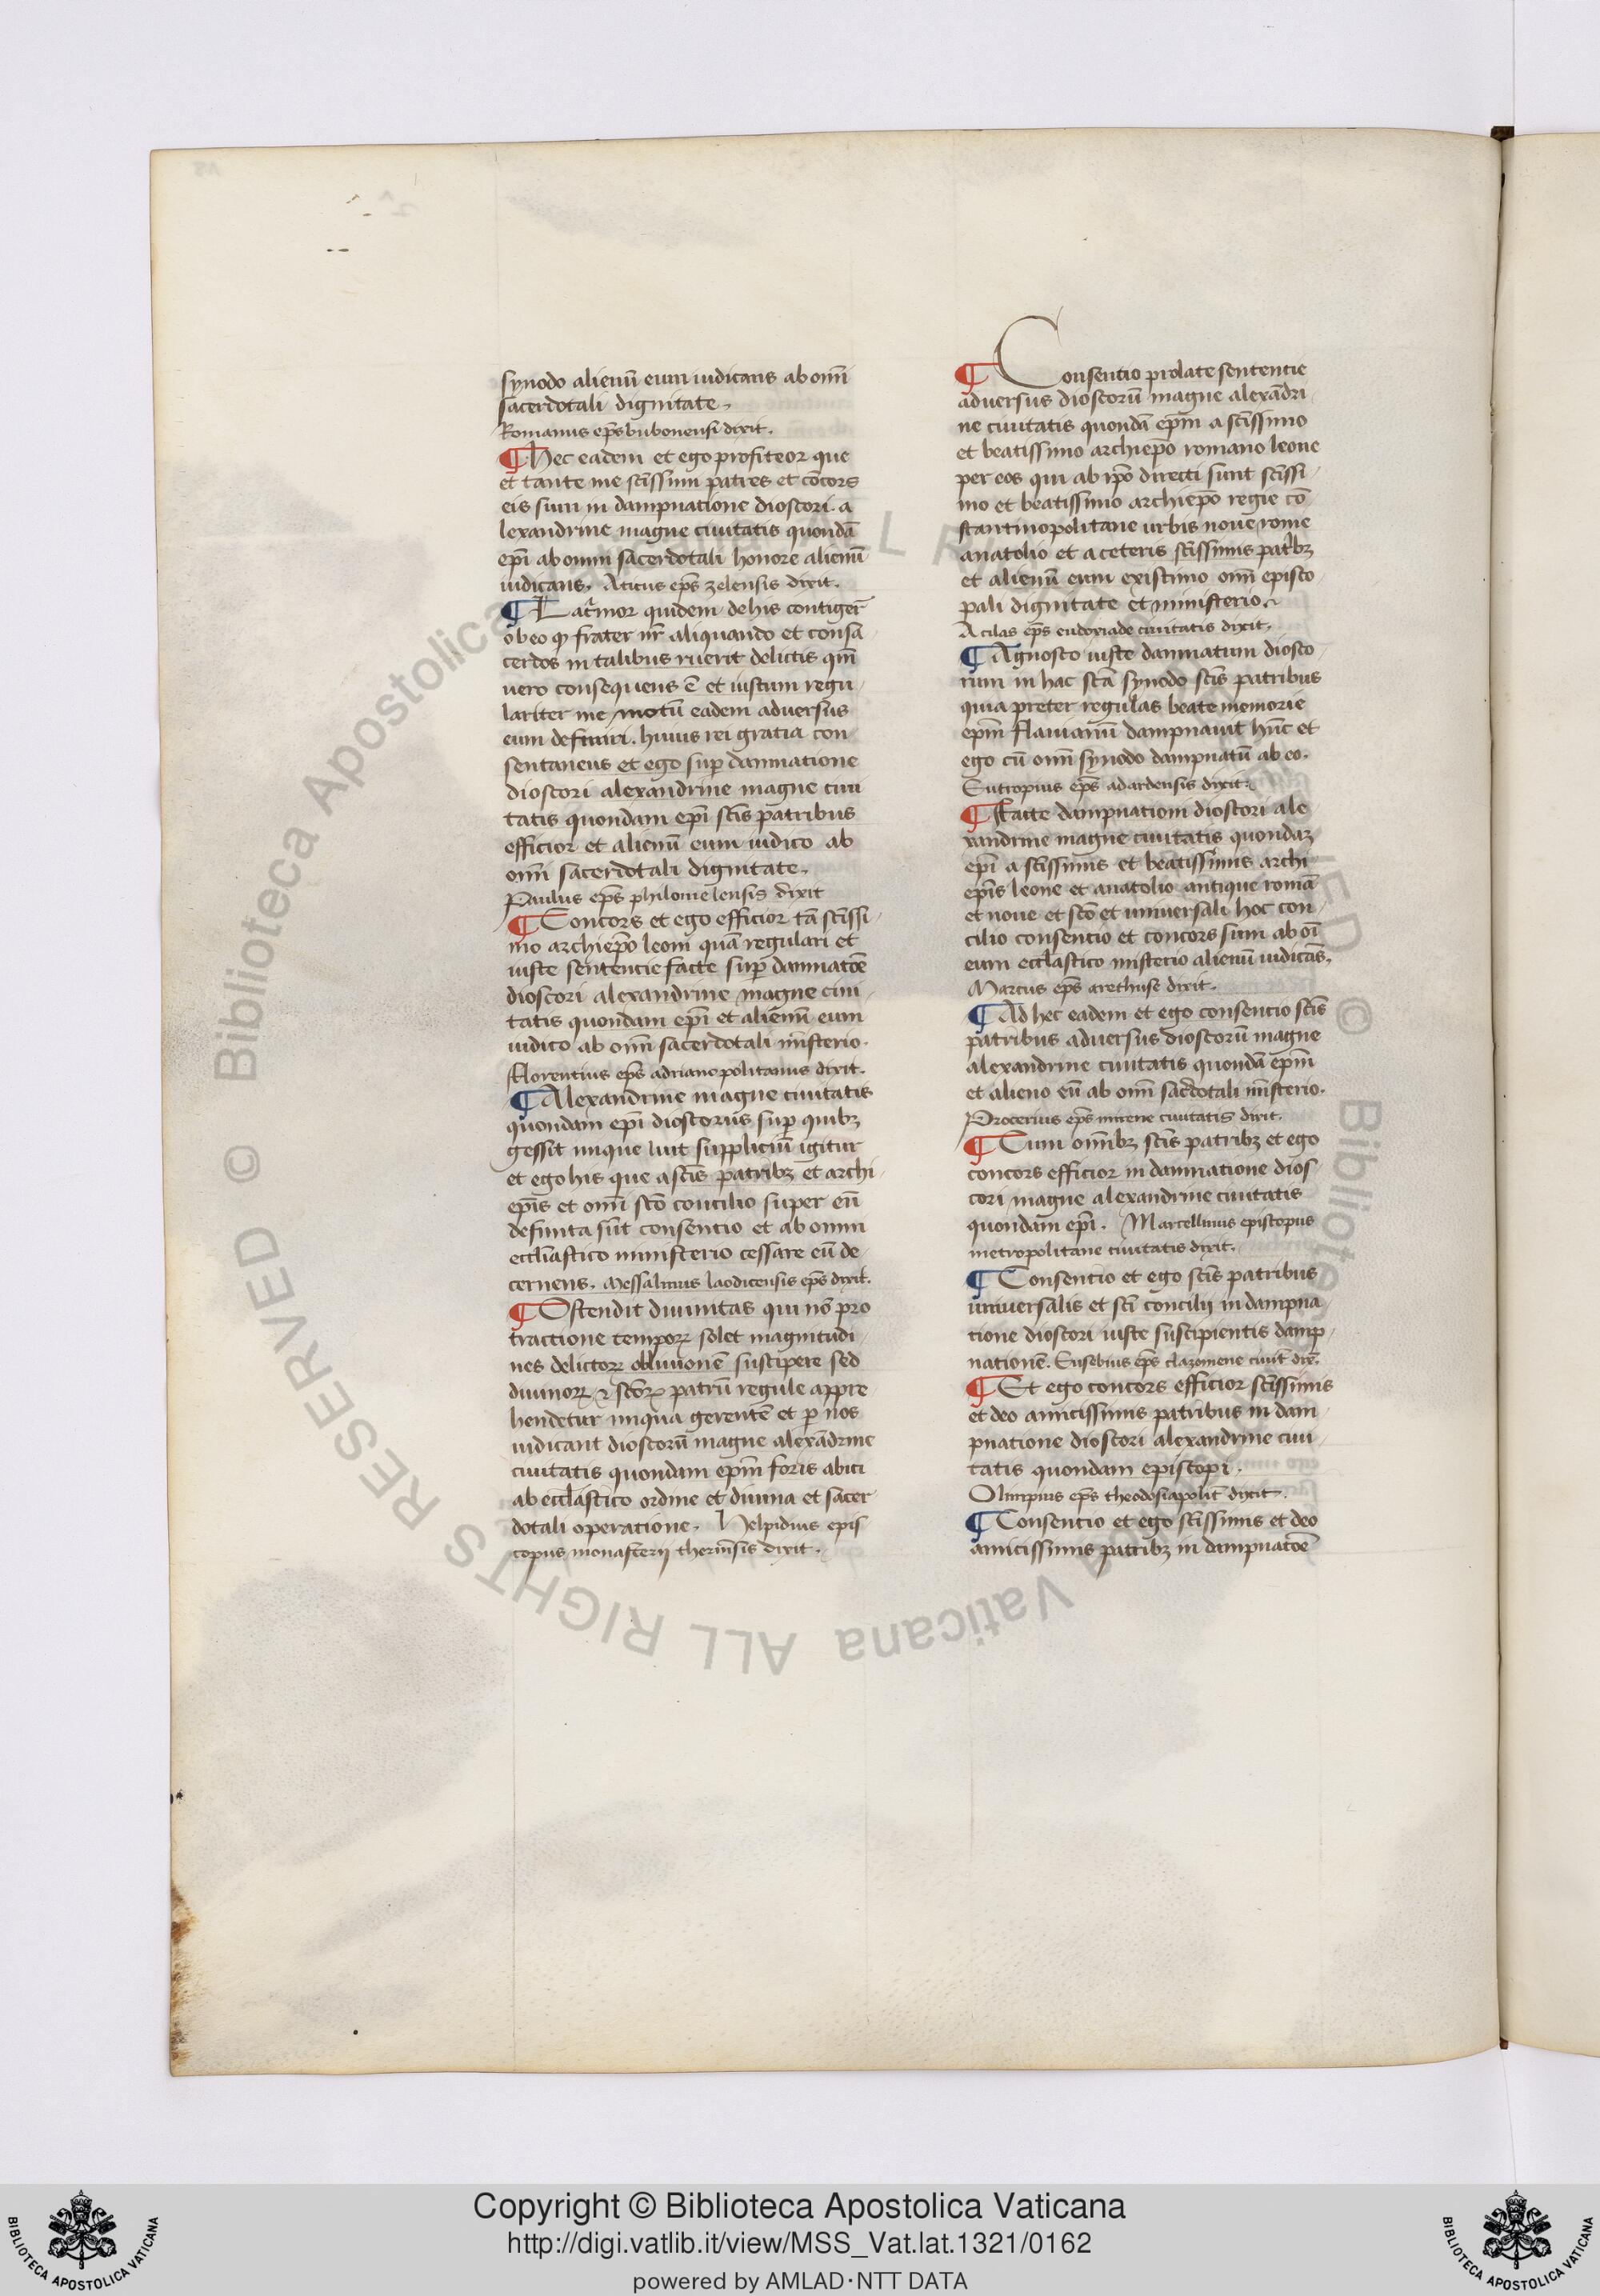 synodo alienū eum iudicans ab om̄i
sacerdotali dignitate.
Romanus ep̄s bubonensi dixit.
¶ Hec eadem et ego profiteor que
et tante me sc̄issimi patres et cōcors
eis sum in dampnatione dioscori. a
lexandrine magne ciuitatis quondā
ep̄i ab omni sacerdotali honore alienū
iudicans. Aticus ep̄s zelensis dixit.
¶ quidem de his contiger̄
ob eo frater nr̄ aliquando et consa
cerdos in talibus ruerit delictis qm̄
uero consequens ē et iustum regu
lariter me motū eadem aduersus
eum definiri. huius rei gratia con
sentaneus et ego suꝑ damnatione
dioscori alexandrine magne ciui
tatis quondam ep̄i sc̄is patribus
efficior et alienū eum iudico ab
om̄i sacerdotali dignitate.
Paulus ep̄s philomelensis dixit
¶ Concors et ego efficior tā sc̄issi
mo archiep̄o leoni quā regulari et
iuste sententie facte suꝑ damnatōe
dioscori alexandrine magne ciui
tatis quondam ep̄i et alienū eum
iudico ab om̄i sacerdotali mīsterio.
Florentius ep̄s adrianopolitanus dixit.
¶ Alexandrine magne ciuitatis
quondam ep̄i dioscorus suꝑ quibꝫ
gessit inique luit suppliciū igitur
et ego his que a sc̄is patribꝫ et archi
ep̄is et om̄i sc̄o concilio super eū
definita sūt consentio et ab omni
eccl̄iastico ministerio cessare eū de
cernens. Messalinus laodicensis ep̄s dixit.
¶ Ostendit diuinitas qui nō pro
tractione temporꝝ solet magnitudi
nes delictorꝝ obliuionē suscipere sed
diuinorꝝ ⁊ sc̄orꝝ patrū regule appre
hendetur iniqua gerentē et ꝑ nos
iudicant dioscorū magne alexādrine
ciuitatis quondam ep̄m foris abici
ab eccl̄astico ordine et diuina et sacer
dotali operatione. Helpidius epis
copus monasterij therm̄sis dixit.
¶ Consentio prolate sententie
aduersus dioscorū magne alexādri
ne ciuitatis quondā ep̄m a sc̄issimo
et beatissimo archiep̄o romano leone
per eos qui ab ip̄o directi sunt sc̄issi
mo et beatissimo archiep̄o regie cō
stantinopolitane urbis noue rome
anatolio et a ceteris sc̄issimis patr̄bꝫ
et alienū eum existimo om̄i episco
pali dignitate et ministerio.
Acilas ep̄s eudoxiade ciuitatis dixit.
¶ Agnosco iuste damnatum diosco
rum in hac sc̄a synodo sc̄is patribus
quia preter regulas beate memorie
ep̄m flauianū dampnauit hūc et
ego cū om̄i synodo dampnatū ab eo.
Eutropius ep̄s adardensis dixit.
¶ Facte dampnationi dioscori ale
xandrine magne ciuitatis quondaꝫ
ep̄i a sc̄issimis et beatissimis archi
ep̄is leone et anatolio antique romā
et noue et sc̄o et uniuersali hoc con
cilio consentio et concors sum ab oī
eum eccl̄astico misterio alienū iudicās.
Marcus ep̄s arethuse dixit.
¶ Ad hec eadem et ego consentio sc̄is
patribus aduersus dioscorū magne
alexandrine ciuitatis quondā ep̄m
et alieno eū ab om̄i sac̄dotali mīsterio.
Procerius ep̄s mirene ciuitatis dixit.
¶ Cum om̄ibꝫ sc̄is patribꝫ et ego
concors efficior in damnatione dios
cori magne alexandrine ciuitatis
quondam ep̄i. Marcellinus episcopus
metropolitane ciuitatis dixit.
¶ Consentio et ego sc̄is patribus
uniuersalis et sc̄i concilij in dampna
tione dioscori iuste suscipientis damp
nationē. Eusebius ep̄s clazomene ciuit̄ dix̄.
¶ Et ego concors efficior sc̄issimis
et deo amicissimis patribus in dam
pnatione dioscori alexandrine ciui
tatis quondam episcopi.
Olimpius ep̄s theodosiapolit̄ dixit.
¶ Consentio et ego sc̄issimis et deo
amicissimis patribꝫ in dampnatōe
© Biblioteca Apostolica Vaticana ALL RIGHTS RESERVED
Copyright © Biblioteca Apostolica Vaticana
http://digi.vatlib.it/view/MSS_Vat.lat.1321/0162
powered by AMLAD·NTT DATA
BIBLIOTECA APOSTOLICA VATICANA
BIBLIOTECA APOSTOLICA VATICANA